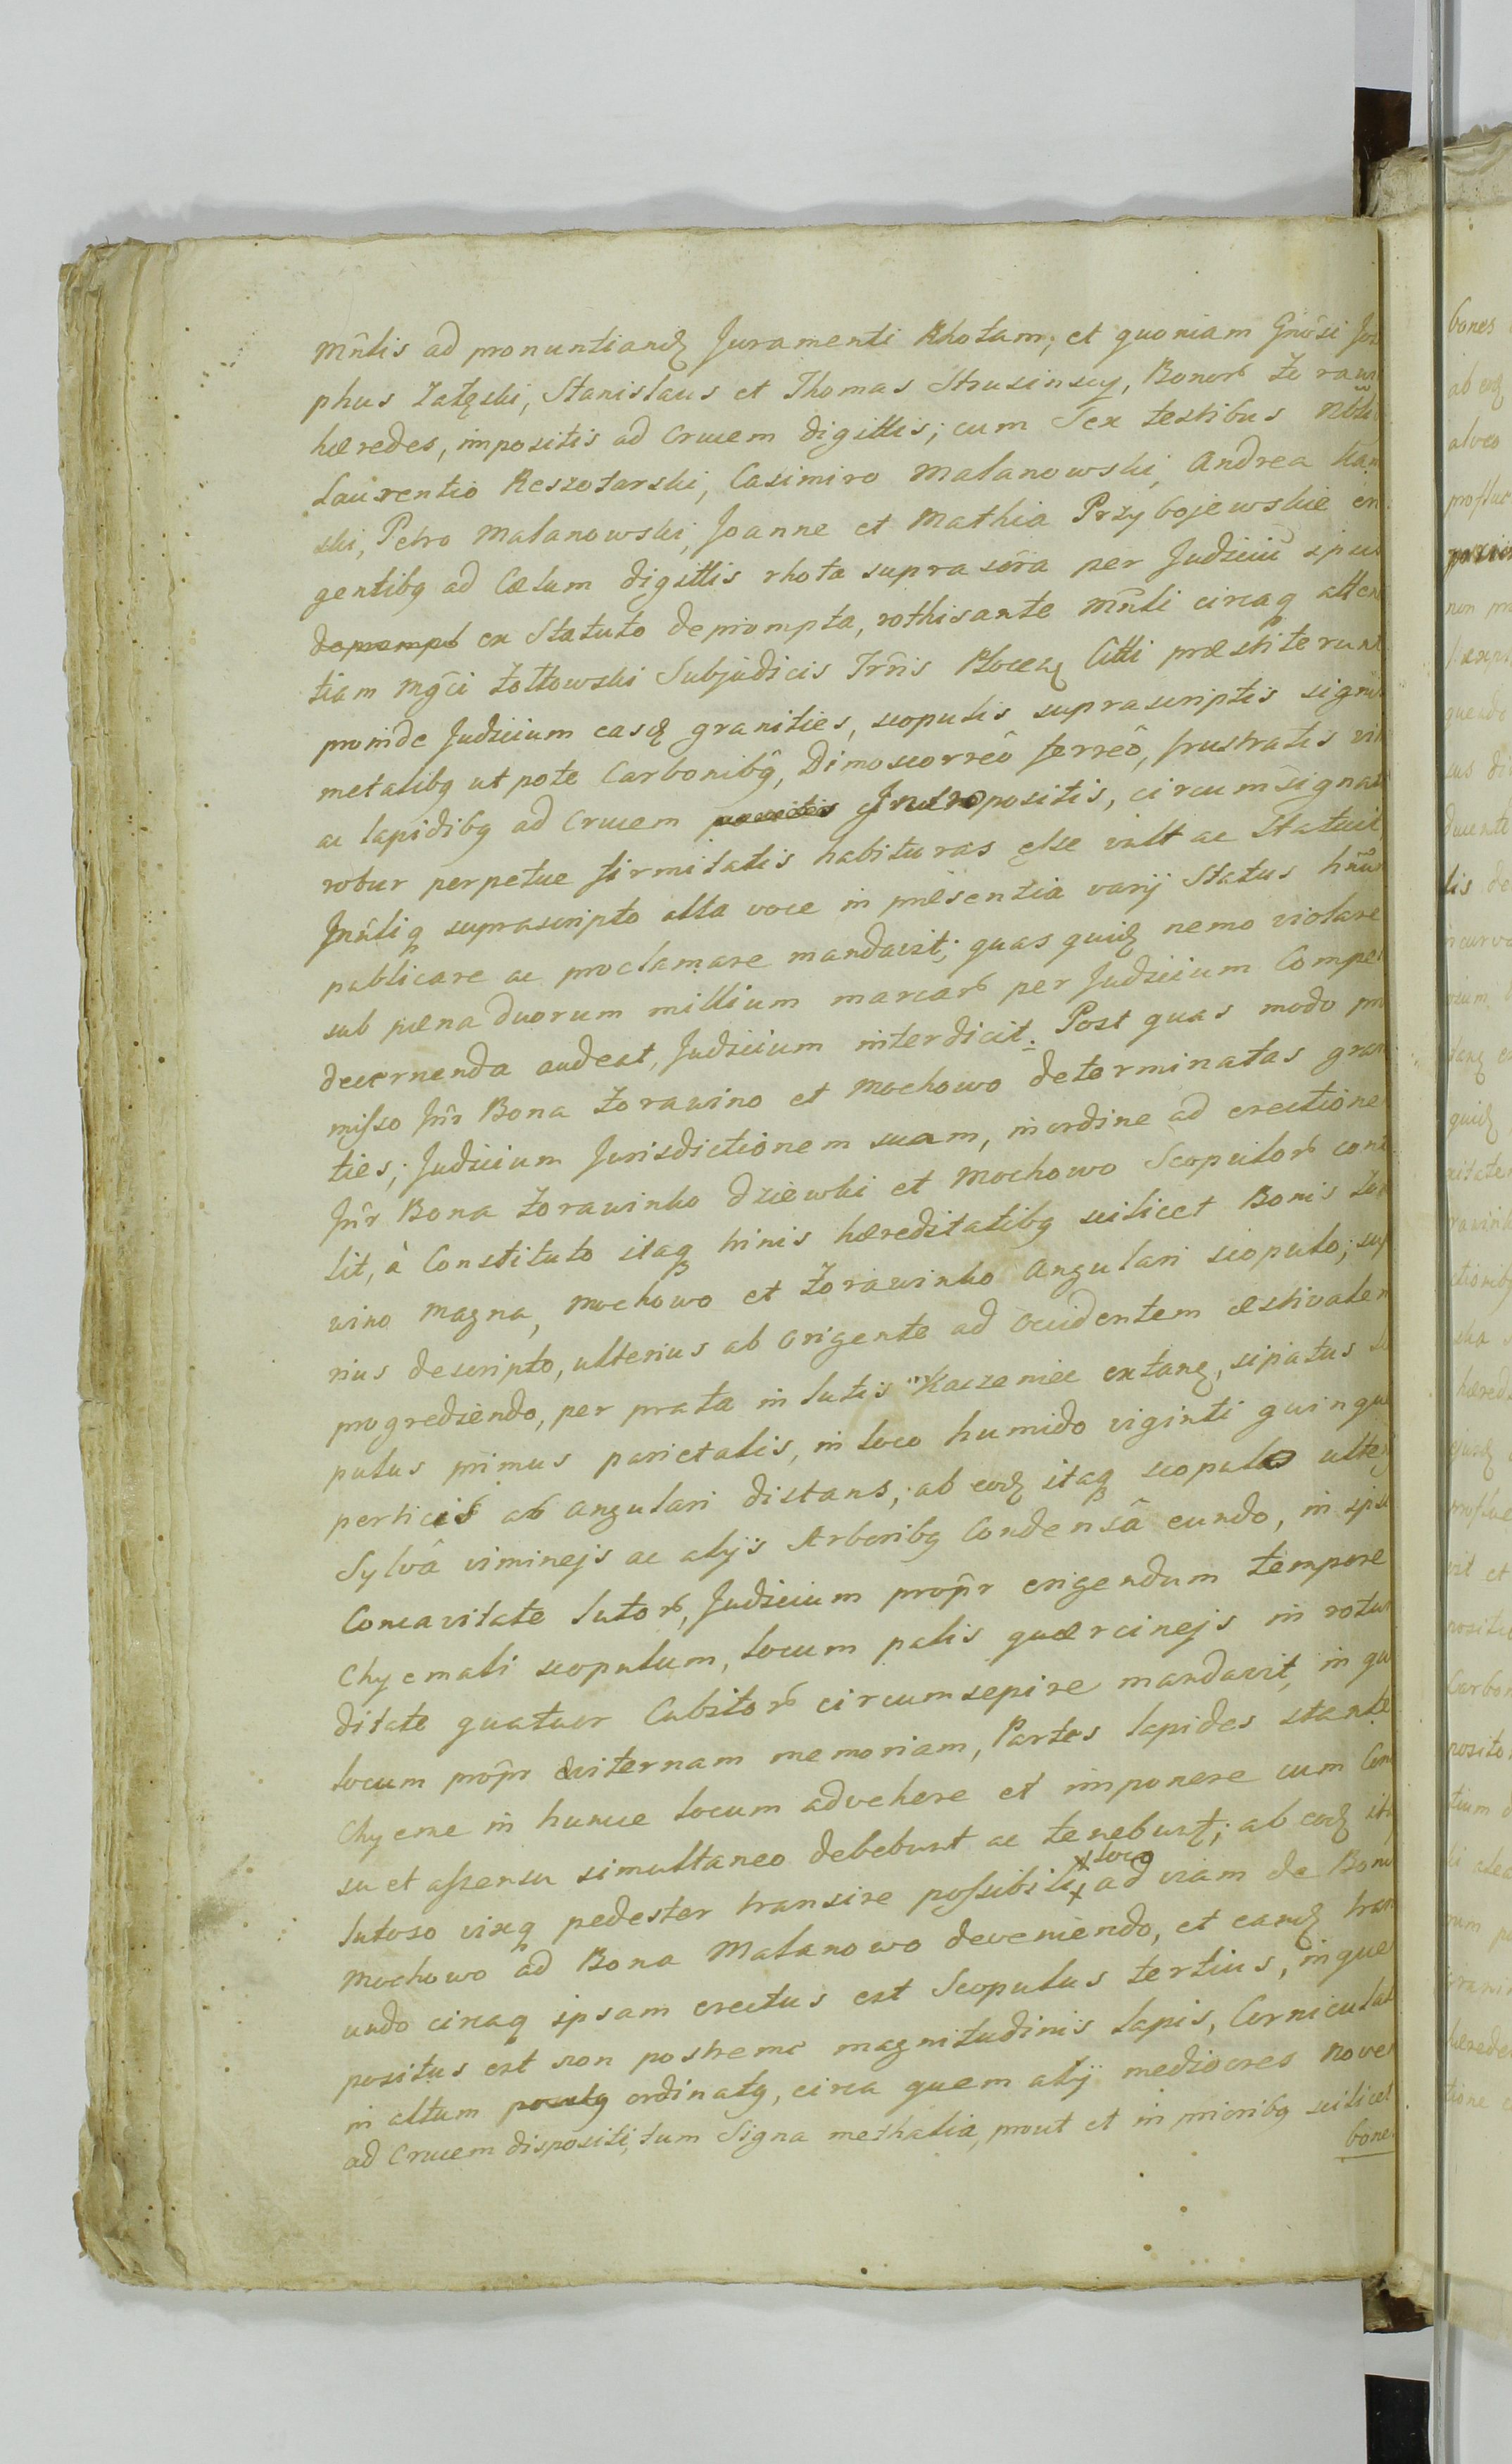 Mñlis ad pronuntiandꝫ Juramenti Rhotam; et quoniam Gnôsi Jos
phus Załęski, Stanislaus et Thomas Strusinscy, Bonorꝝ Żuraw
hæredes, impositis ad Crucem digittis; cum Sex testibus Nbli
Laurentio Reszotarski, Casimiro Malanowski, Andrea
ski, Petro Malanowski, Joanne et Mathia Przybojewskie eri
gentibꝗ ad Cælum digittis rhota supra scr̃ta per Judiciũ ipsu
deprompt ex Statuto deprompta, rothisante Mñli circaqꝫ atten
tiam Mgĉi Żołtowski Subjudicis Trr̃is Plocenꝫ Citti præstiterunt
proinde Judicium easdꝫ granities, scopulis suprascriptis signis
metalibꝗ ut pote Carbonibꝗ, Dimoscorreô ferreô, frustratis vit
ac lapidibꝗ ad Crucem Intropositis, circumsignat
robur perpetue firmitatis habituras esse vult ac Statuit,
Mñliqꝫ suprascripto alta voce in præsentia varij Status hñũ
publicare ac proclamare mandavit; quas quidꝫ nemo violare
sub pæna duorum millium marcarꝝ per Judicium Compet
decernenda audeat, Judicium interdicit. Post quas modo pr
misso Inr̃ Bona Żorawino et Mochowo determinatas grani
ties; Judicium Jurisdictionem suam, in ordine ad erectione
Inr̃ Bona Żorawinko dziewki et Mochowo Scopulorꝝ cont
lit, à Constituto itaqꝫ trinis hæreditatibꝗ scilicet Bonis Żor
wino Magna, Mochowo et Żorawinko Angulari scopulo; sup
rius descripto, ulterius ab origente ad Occidentem æstivalem
progrediendo, per prata in lutis "Kaczeniec extanꝫ, sipatus sco
pulus primus parietalis, in loco humido viginti quinque
perticis ab angulari distans; ab eodꝫ itaqꝫ scopulo ulteri
Sylvâ viminejs ac alijs Arboribꝗ Condensâ eundo, in ipsa
Concavitate lutorꝝ, Judicium prop̃r erigendum tempore
Chyemali scopulum, locum palis quærcinejs in rotun
ditate quatuor Cubitorꝝ circumsepire mandavit, in qu
locum prop̃r æviternam memoriam, Partes lapides stante
Chyeme in hunce locum advehere et imponere cum Con
su et assensu simultaneo debebunt ac tenebunt; ab eodꝫ ita
lutoso vixqꝫ pedester transire possibili ⁺ loco ad viam de Bonis
Mochowo ad Bona Malanowo deveniendo, et eandꝫ trans
undo circaqꝫ ipsam erectus est Scopulus tertius, in que
positus est non postreme magnitudinis lapis, Corniculat
in altum ordinatꝗ, circa quem alij mediocres nove
ad Crucem dispositi, tum Signa methalia, prout et in prioribꝗ scilicet
bone